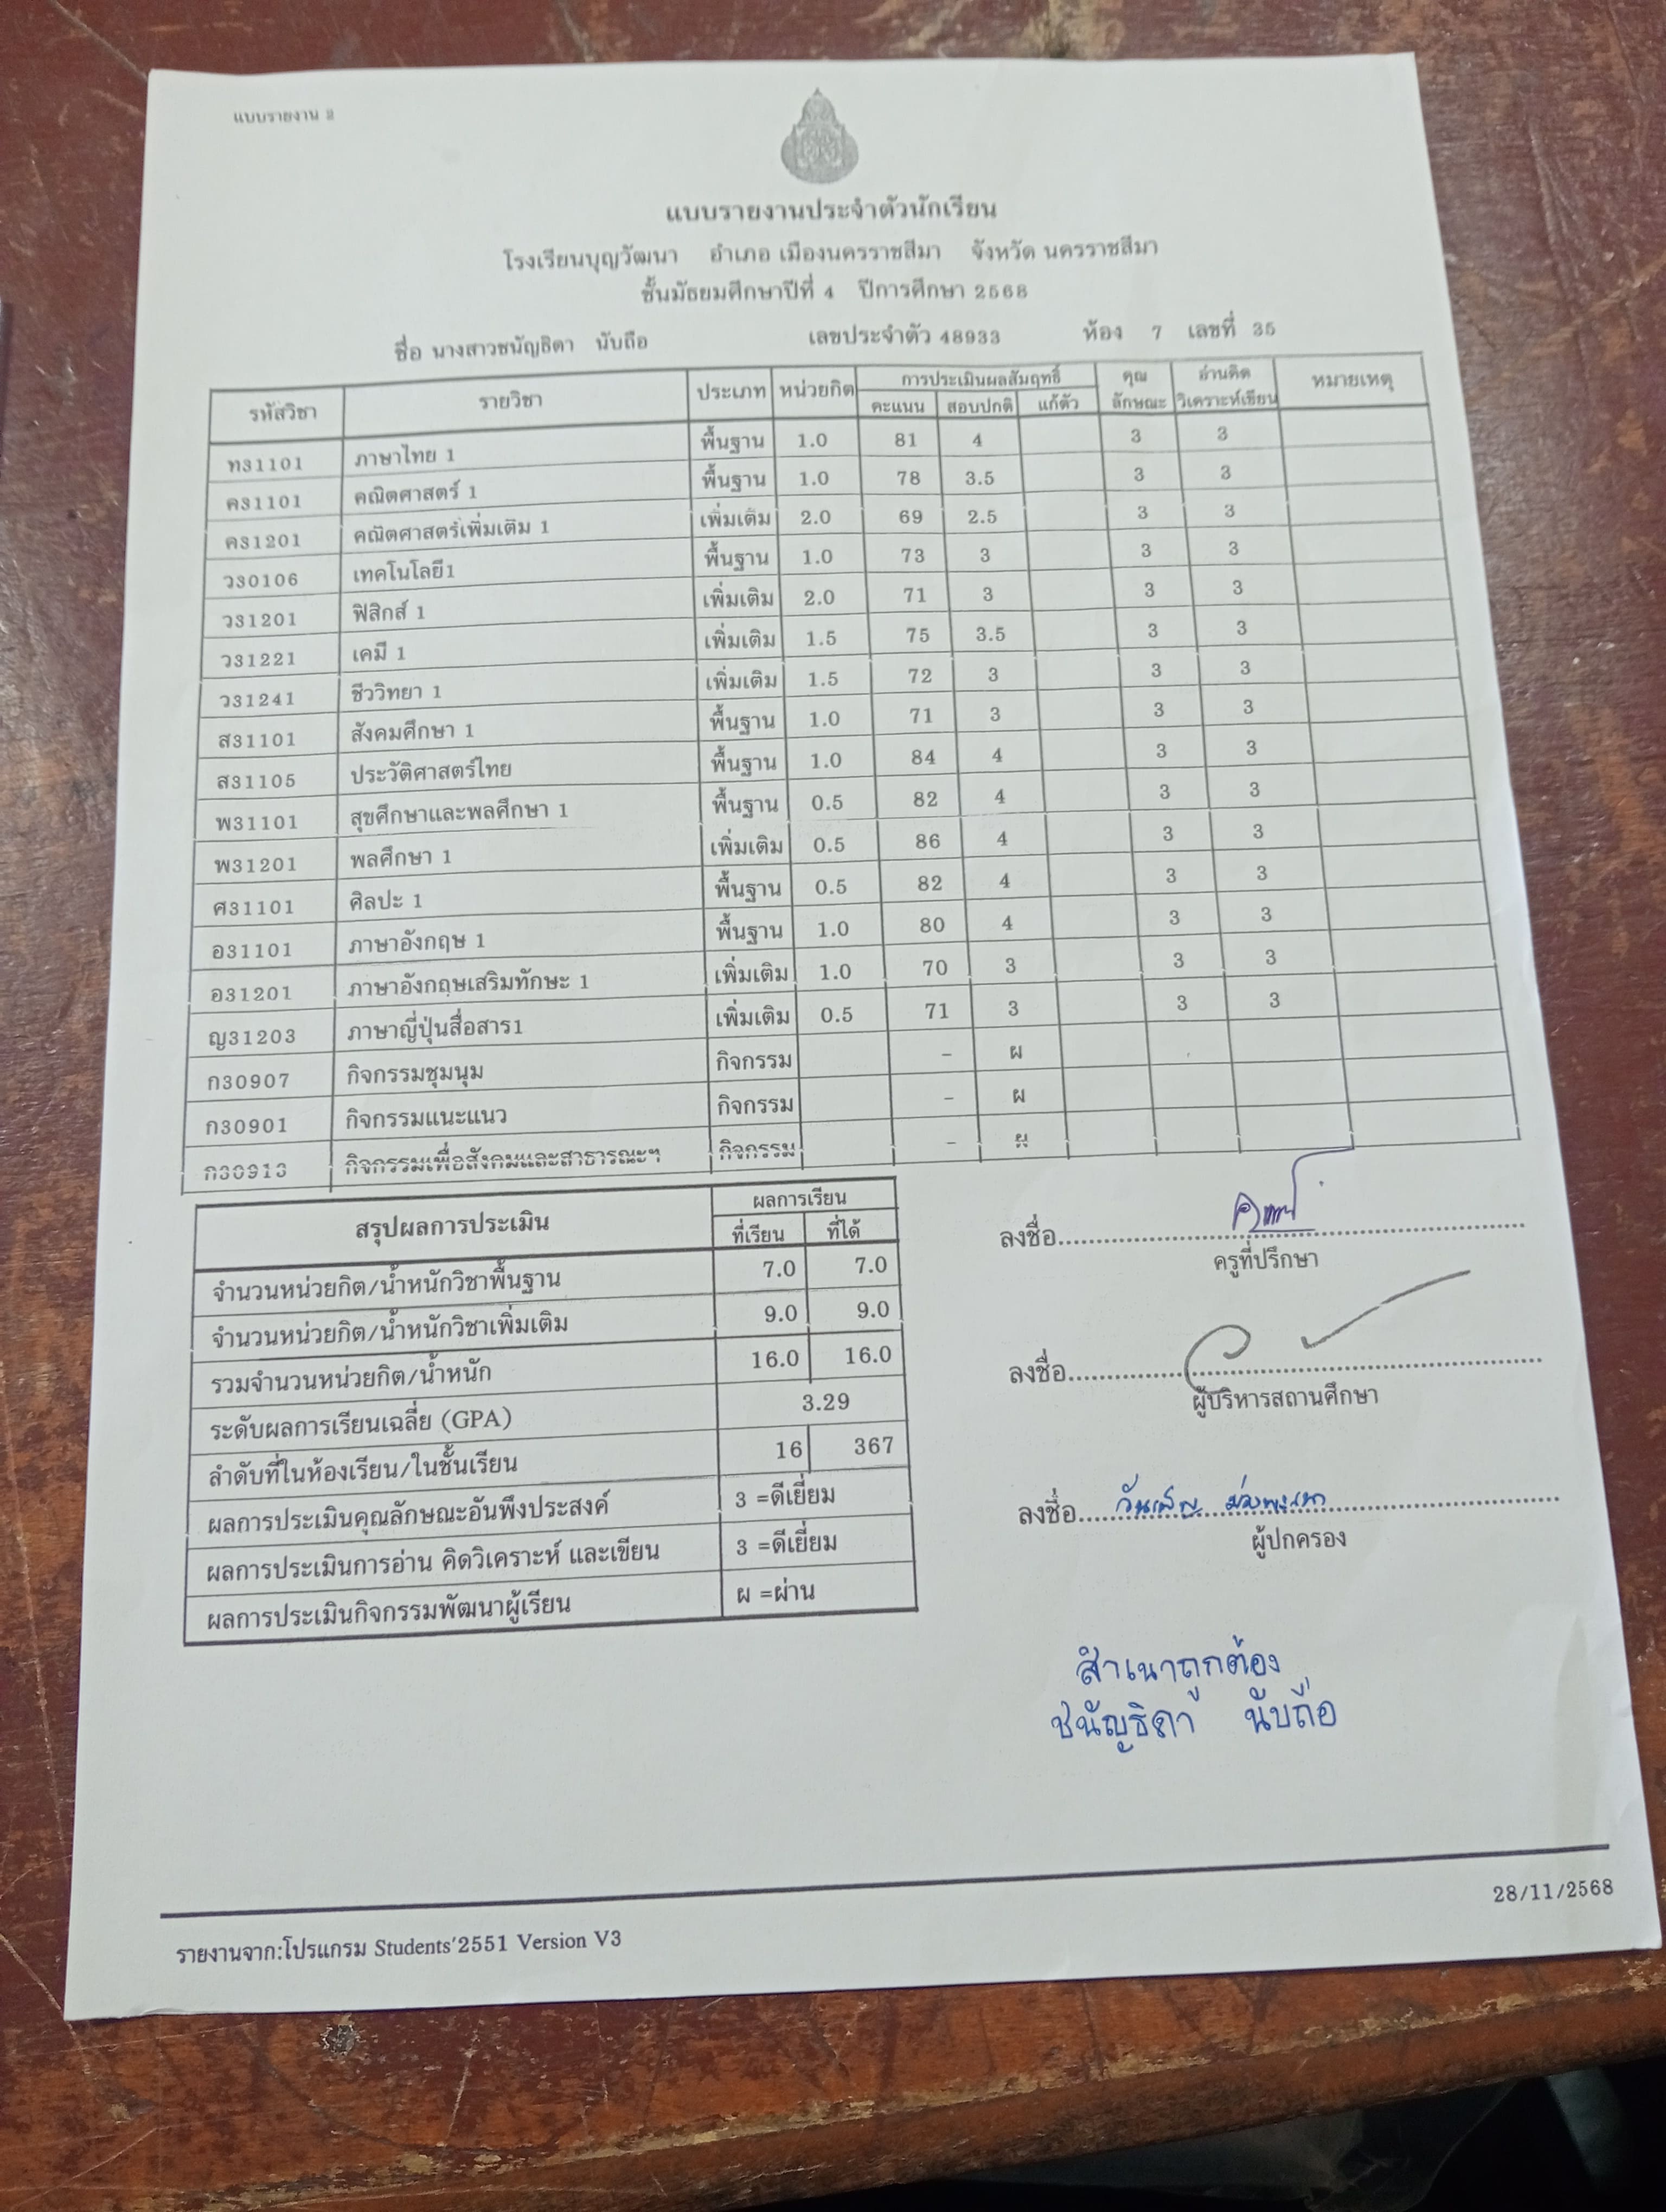 แบบรายงาน 2
แบบรายงานประจำตัวนักเรียน
โรงเรียนบุญวัฒนา อำเภอ เมืองนครราชสีมา จังหวัด นครราชสีมา
ชั้นมัธยมศึกษาปีที่ 4 ปีการศึกษา 2568
ชื่อ นางสาวชนัญธิดา นับถือ เลขประจำตัว 48933 ห้อง 7 เลขที่ 35
รหัสวิชา รายวิชา ประเภท หน่วยกิต การประเมินผลสัมฤทธิ์ คุณลักษณะ อ่านคิดวิเคราะห์เขียน หมายเหตุ
คะแนน สอบปกติ แก้ตัว
ท31101 ภาษาไทย 1 พื้นฐาน 1.0 81 4 3 3
ค31101 คณิตศาสตร์ 1 พื้นฐาน 1.0 78 3.5 3 3
ค31201 คณิตศาสตร์เพิ่มเติม 1 เพิ่มเติม 2.0 69 2.5 3 3
ว30106 เทคโนโลยี1 พื้นฐาน 1.0 73 3 3 3
ว31201 ฟิสิกส์ 1 เพิ่มเติม 2.0 71 3 3 3
ว31221 เคมี 1 เพิ่มเติม 1.5 75 3.5 3 3
ว31241 ชีววิทยา 1 เพิ่มเติม 1.5 72 3 3 3
ส31101 สังคมศึกษา 1 พื้นฐาน 1.0 71 3 3 3
ส31105 ประวัติศาสตร์ไทย พื้นฐาน 1.0 84 4 3 3
พ31101 สุขศึกษาและพลศึกษา 1 พื้นฐาน 0.5 82 4 3 3
พ31201 พลศึกษา 1 เพิ่มเติม 0.5 86 4 3 3
ศ31101 ศิลปะ 1 พื้นฐาน 0.5 82 4 3 3
อ31101 ภาษาอังกฤษ 1 พื้นฐาน 1.0 80 4 3 3
อ31201 ภาษาอังกฤษเสริมทักษะ 1 เพิ่มเติม 1.0 70 3 3 3
ญ31203 ภาษาญี่ปุ่นสื่อสาร1 เพิ่มเติม 0.5 71 3 3 3
ก30907 กิจกรรมชุมนุม กิจกรรม - ผ
ก30901 กิจกรรมแนะแนว กิจกรรม - ผ
ก30913 กิจกรรมเพื่อสังคมและสาธารณะฯ กิจกรรม - ผ
สรุปผลการประเมิน ผลการเรียน
ที่เรียน ที่ได้
จำนวนหน่วยกิต/น้ำหนักวิชาพื้นฐาน 7.0 7.0
จำนวนหน่วยกิต/น้ำหนักวิชาเพิ่มเติม 9.0 9.0
รวมจำนวนหน่วยกิต/น้ำหนัก 16.0 16.0
ระดับผลการเรียนเฉลี่ย (GPA) 3.29
ลำดับที่ในห้องเรียน/ในชั้นเรียน 16 367
ผลการประเมินคุณลักษณะอันพึงประสงค์ 3 =ดีเยี่ยม
ผลการประเมินการอ่าน คิดวิเคราะห์ และเขียน 3 =ดีเยี่ยม
ผลการประเมินกิจกรรมพัฒนาผู้เรียน ผ =ผ่าน
ลงชื่อ
ครูที่ปรึกษา
ลงชื่อ
ผู้บริหารสถานศึกษา
ลงชื่อ วันเพ็ญ
ผู้ปกครอง
สำเนาถูกต้อง
ชนัญธิดา นับถือ
28/11/2568
รายงานจาก:โปรแกรม Students'2551 Version V3